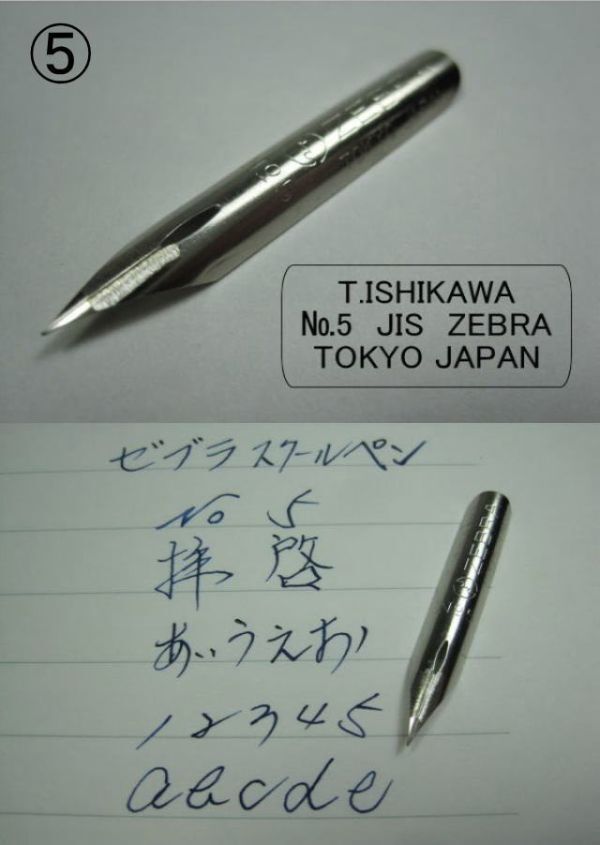 ⑤
T.ISHIKAWA
№.5 JIS ZEBRA
TOKYO JAPAN
ゼブラスクールペン
No 5
拝啓
あいうえお
12345
abcde
ZEBRA